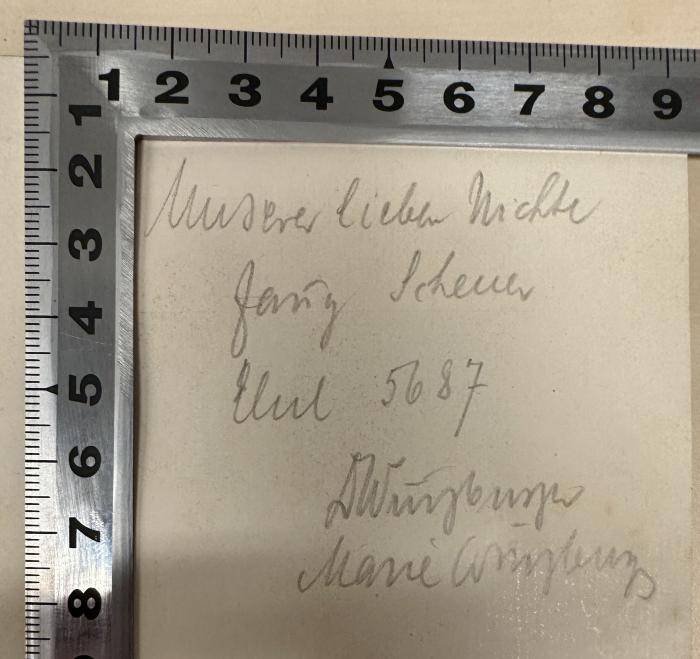 1 2 3 4 5 6 7 8 9
1
2
3
4
5
6
7
8
Unserer lieben Nichte
Fanny Scheuer
Elul 5687
DWürzburger
Marie Würzburger